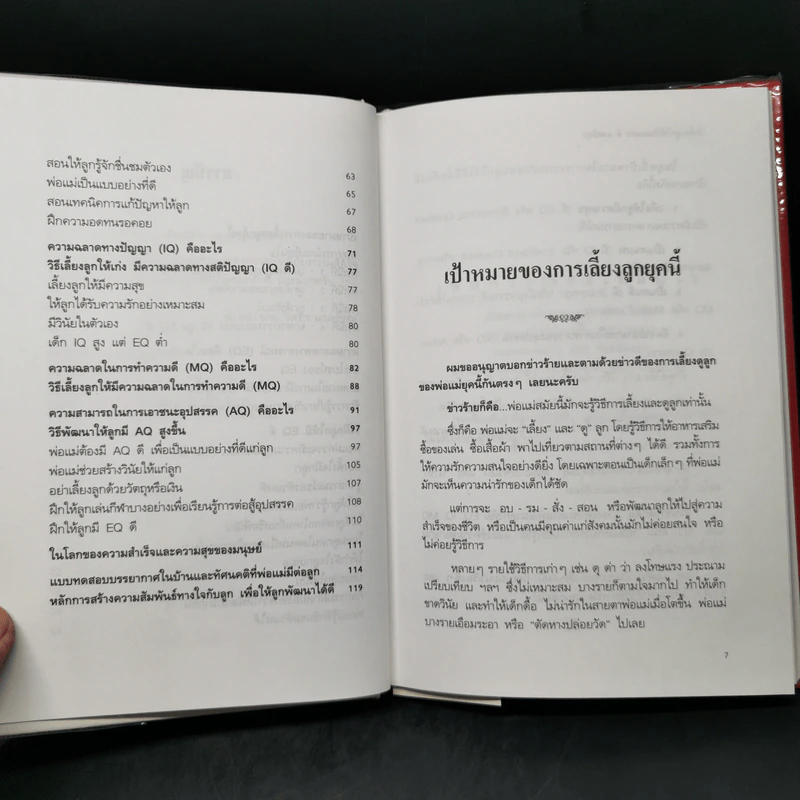 สอนให้ลูกรู้จักชื่นชมตัวเอง 63
พ่อแม่เป็นแบบอย่างที่ดี 65
สอนเทคนิคการแก้ปัญหาให้ลูก 67
ฝึกความอดทนรอคอย 68
ความฉลาดทางปัญญา (IQ) คืออะไร 71
วิธีเลี้ยงลูกให้เก่ง มีความฉลาดทางสติปัญญา (IQ ดี) 77
เลี้ยงลูกให้มีความสุข 77
ให้ลูกได้รับความรักอย่างเหมาะสม 78
มีวินัยในตัวเอง 80
เด็ก IQ สูง แต่ EQ ต่ำ 80
ความฉลาดในการทำความดี (MQ) คืออะไร 82
วิธีเลี้ยงลูกให้มีความฉลาดในการทำความดี (MQ) 88
ความสามารถในการเอาชนะอุปสรรค (AQ) คืออะไร 91
วิธีพัฒนาให้ลูกมี AQ สูงขึ้น 97
พ่อแม่ต้องมี AQ ดี เพื่อเป็นแบบอย่างที่ดีแก่ลูก 97
พ่อแม่ช่วยสร้างวินัยให้แก่ลูก 105
อย่าเลี้ยงลูกด้วยวัตถุหรือเงิน 107
ฝึกให้ลูกเล่นกีฬาบางอย่างเพื่อเรียนรู้การต่อสู้อุปสรรค 108
ฝึกให้ลูกมี EQ ดี 110
ในโลกของความสำเร็จและความสุขของมนุษย์ 111
แบบทดสอบบรรยากาศในบ้านและทัศนคติที่พ่อแม่มีต่อลูก 114
หลักการสร้างความสัมพันธ์ทางใจกับลูก เพื่อให้ลูกพัฒนาได้ดี 119
เป้าหมายของการเลี้ยงลูกยุคนี้
ผมขออนุญาตบอกข่าวร้ายและตามด้วยข่าวดีของการเลี้ยงดูลูก
ของพ่อแม่ยุคนี้กันตรงๆ เลยนะครับ
ข่าวร้ายก็คือ...พ่อแม่สมัยนี้มักจะรู้วิธีการเลี้ยงและดูลูกเท่านั้น
ซึ่งก็คือ พ่อแม่จะ "เลี้ยง" และ "ดู" ลูก โดยรู้วิธีการให้อาหารเสริม
ซื้อของเล่น ซื้อเสื้อผ้า พาไปเที่ยวตามสถานที่ต่างๆ ได้ดี รวมทั้งการ
ให้ความรักความสนใจอย่างดียิ่ง โดยเฉพาะตอนเป็นเด็กเล็กๆ ที่พ่อแม่
มักจะเห็นความน่ารักของเด็กได้ชัด
แต่การจะ อบ - รม - สั่ง - สอน หรือพัฒนาลูกให้ไปสู่ความ
สำเร็จของชีวิต หรือเป็นคนมีคุณค่าแก่สังคมนั้นมักไม่ค่อยสนใจ หรือ
ไม่ค่อยรู้วิธีการ
หลายๆ รายใช้วิธีการเก่าๆ เช่น ดุ ด่า ว่า ลงโทษแรง ประณาม
เปรียบเทียบ ฯลฯ ซึ่งไม่เหมาะสม บางรายก็ตามใจมากไป ทำให้เด็ก
ขาดวินัย และทำให้เด็กดื้อ ไม่น่ารักในสายตาพ่อแม่เมื่อโตขึ้น พ่อแม่
บางรายเอือมระอา หรือ "ตัดหางปล่อยวัด" ไปเลย
7